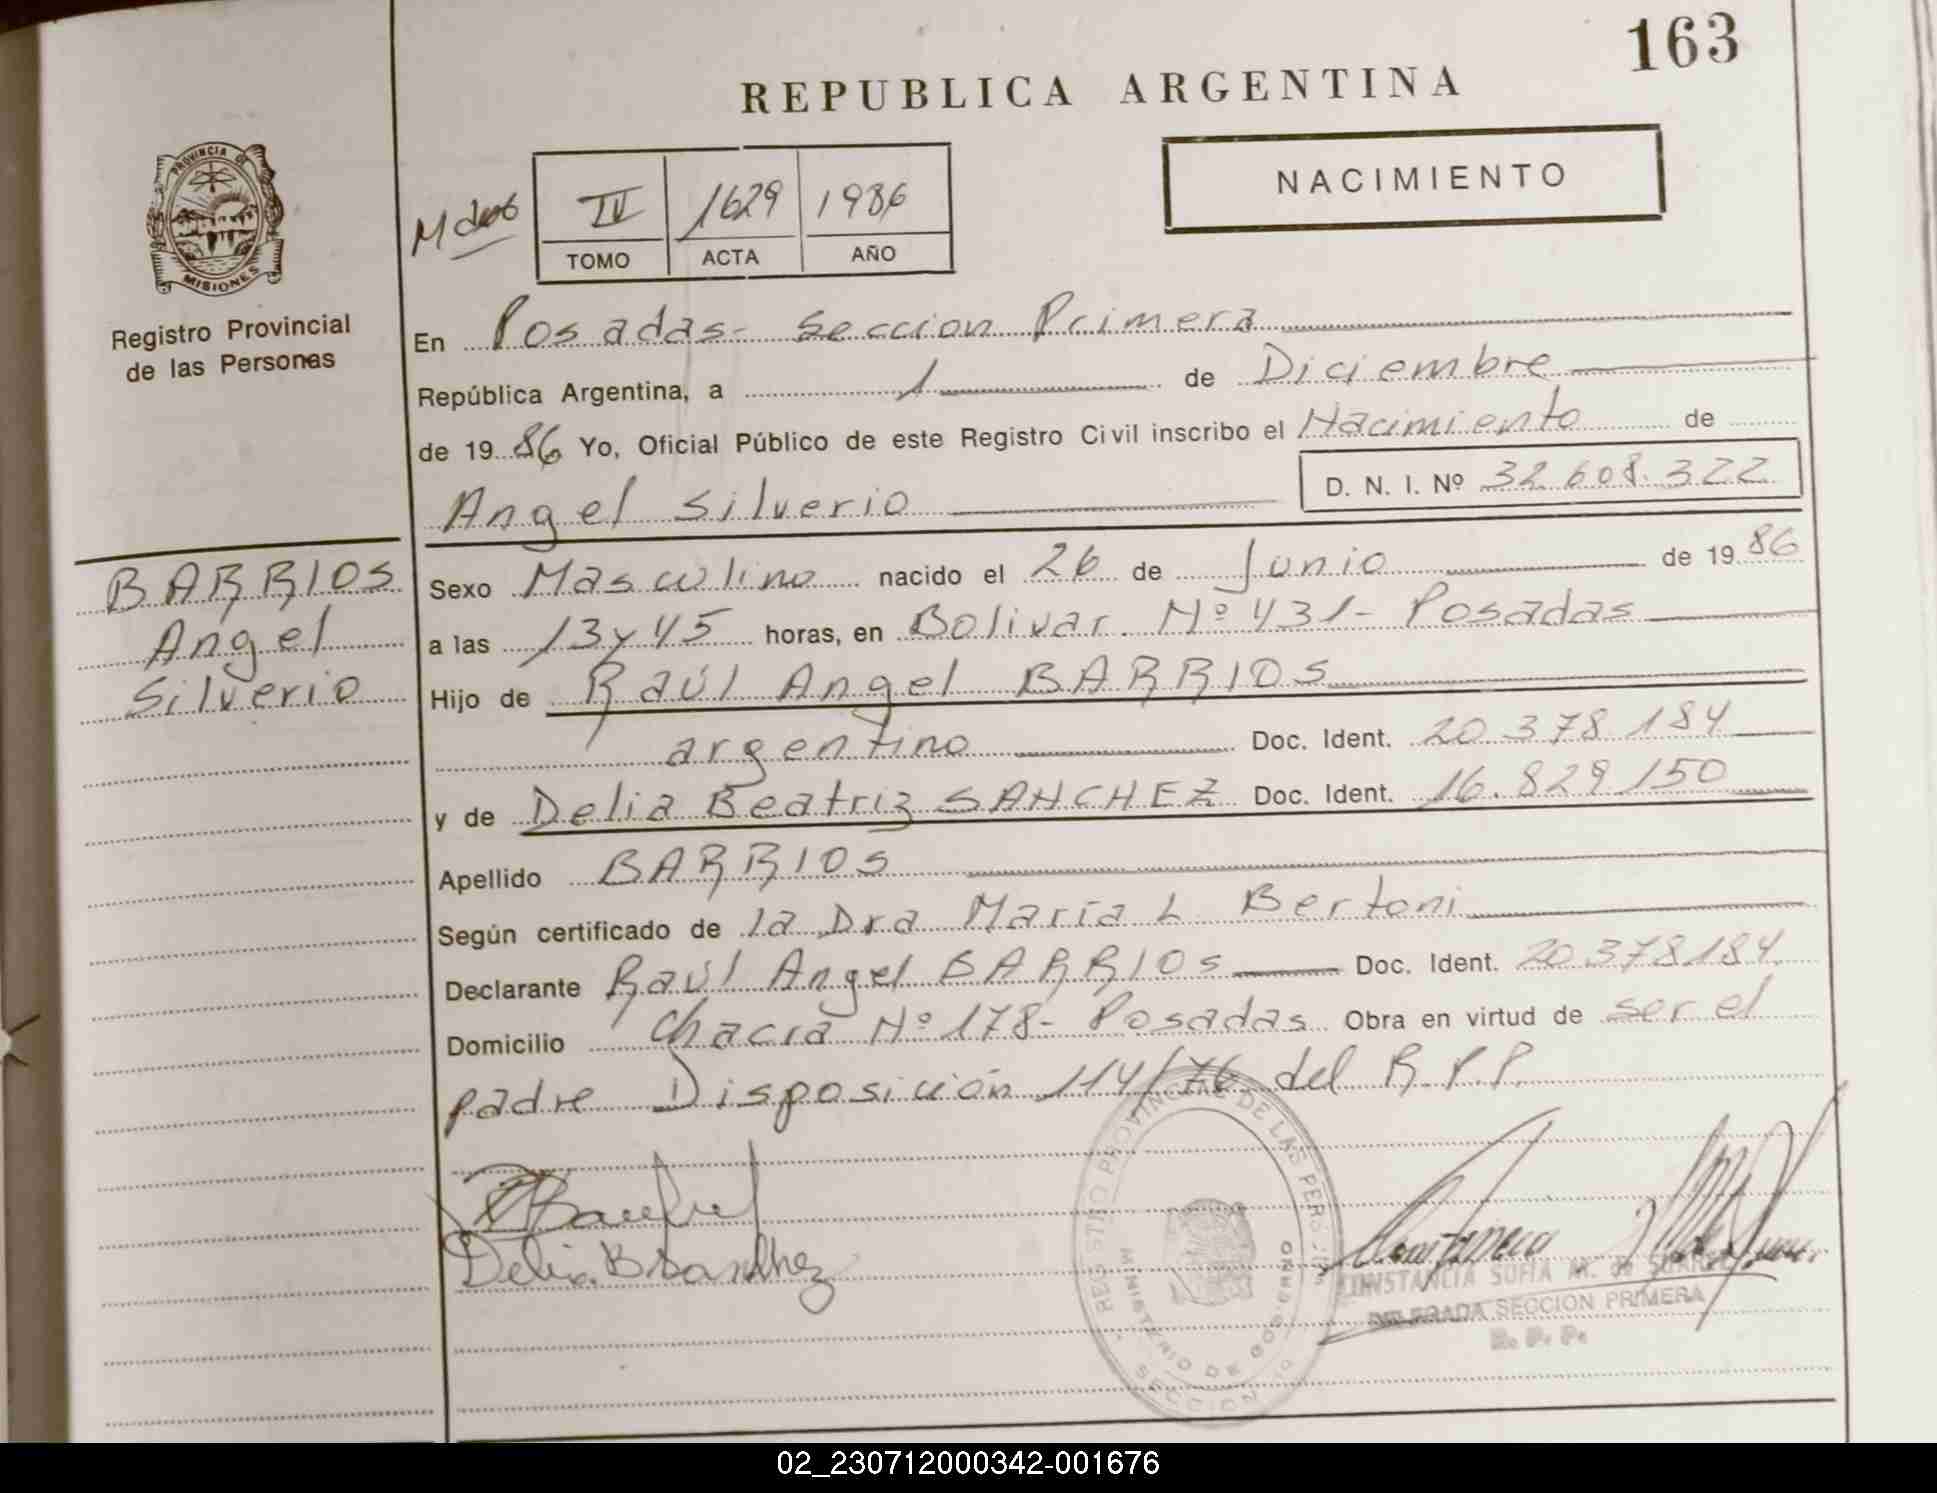 163
REPUBLICA ARGENTINA
NACIMIENTO
PROVINCIA DE
MISIONES
Registro Provincial
de las Personas
IV 1629 1986
TOMO ACTA AÑO
En Posadas- Seccion Primera
República Argentina, a 1 de Diciembre
de 1986 Yo, Oficial Público de este Registro Civil inscribo el Nacimiento de
Angel Silverio D. N. I. Nº 32.608.322
BARRIOS
Angel
Silverio
Sexo Masculino nacido el 26 de Junio de 1986
a las 13 y 45 horas, en Bolivar Nº 431- Posadas
Hijo de Raúl Angel BARRIOS
argentino Doc. Ident. 20.378.184
y de Delia Beatriz SANCHEZ Doc. Ident. 16.829.150
Apellido BARRIOS
Según certificado de la Dra Maria L Bertoni
Declarante Raúl Angel BARRIOS Doc. Ident. 20.378.184.
Domicilio Chacra Nº 178- Posadas Obra en virtud de ser el
padre Disposición 114/76 del R.P.P.
Delia B Sanchez
REGISTRO PROVINCIAL DE LAS PERS
MINISTERIO DE GOBIERNO
CONSTANCIA SOFIA M. de
DELEGADA SECCION PRIMERA
R. P. P.
02_230712000342-001676